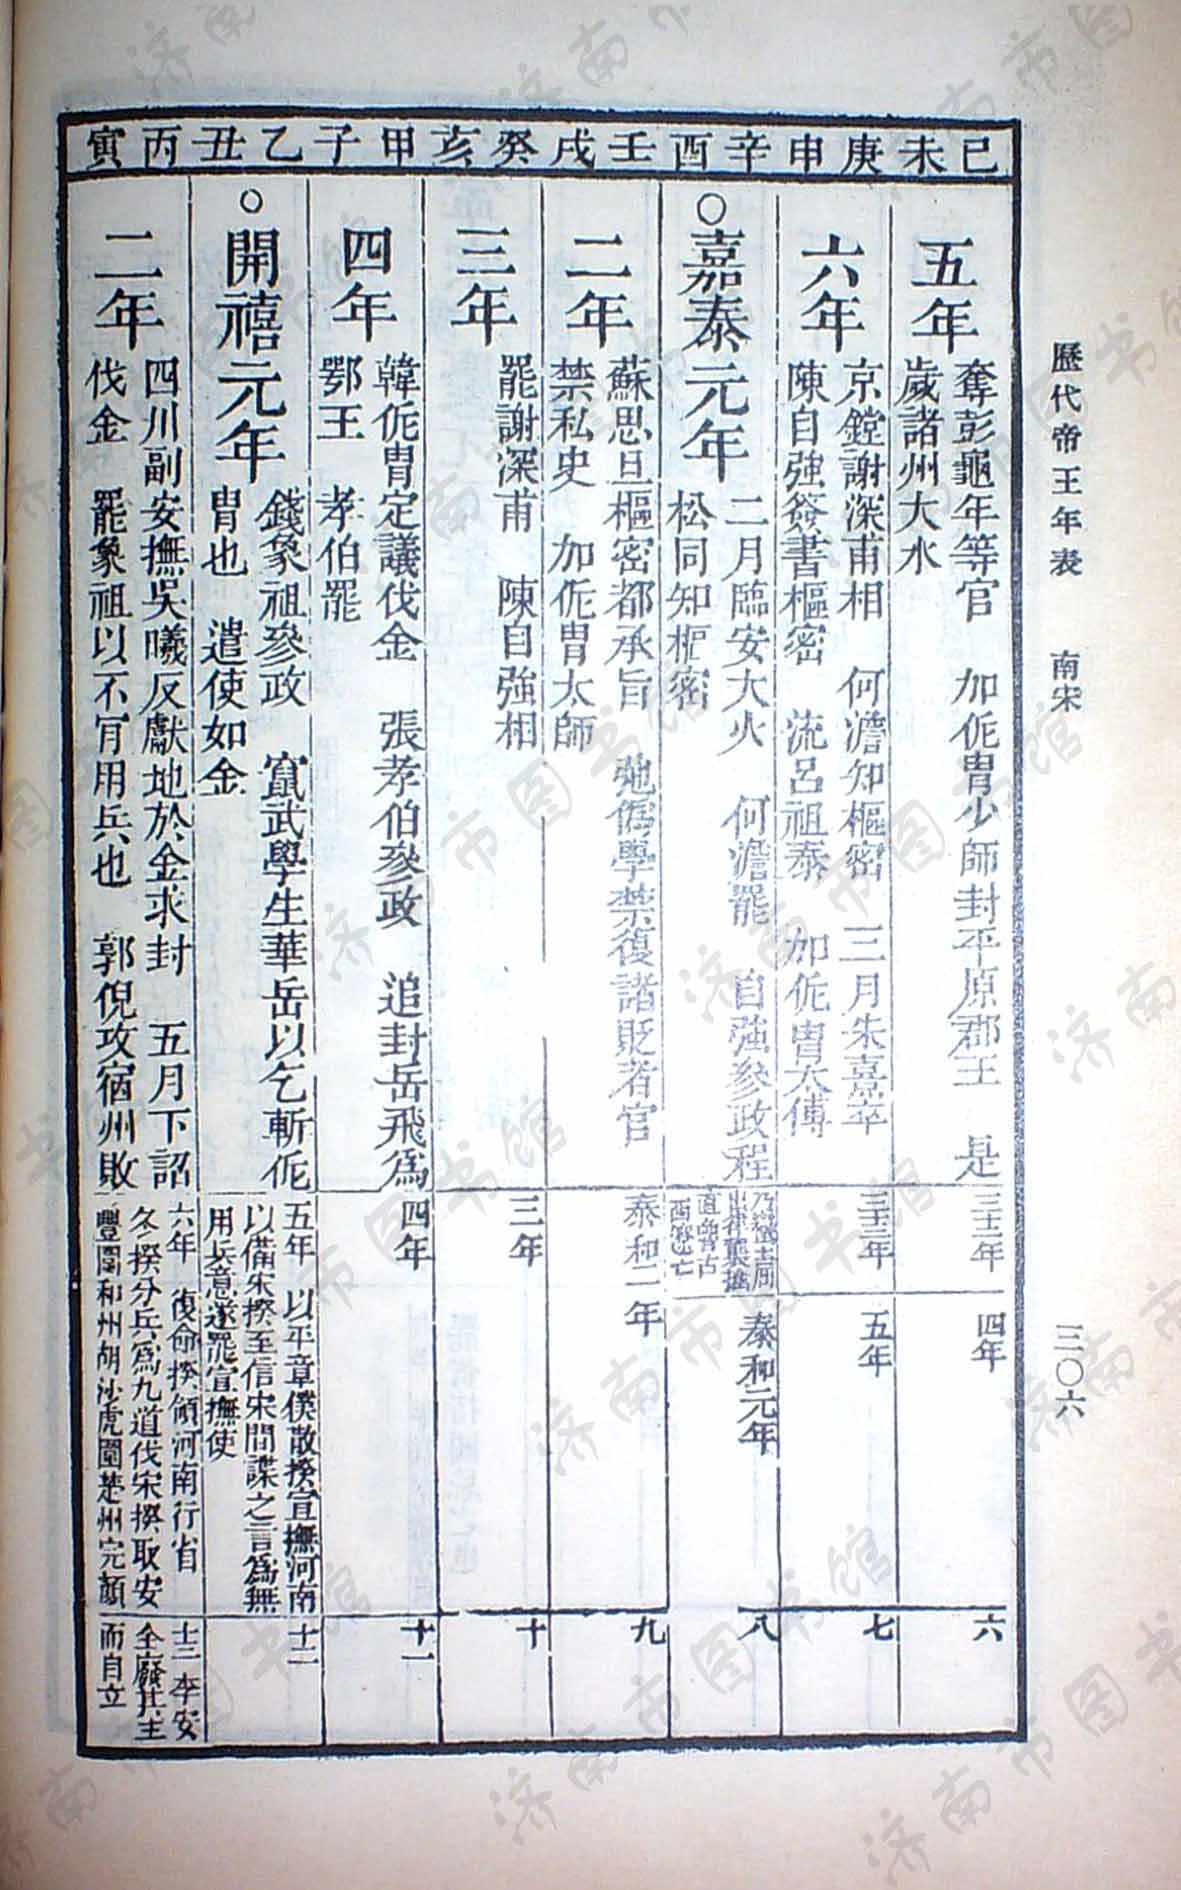 歷代帝王年表
南宋
三〇六
己未庚申辛酉壬戌癸亥甲子乙丑丙寅
五年
奪彭龜年等官　加侂胄少師封平原郡王　是
歲諸州大水
三十二年
四年
六
六年
京鏜謝深甫相　何澹知樞密　三月朱熹卒
陳自強簽書樞密　流呂祖泰　加侂胄太傅
三十三年
五年
七
〇嘉泰元年
二月臨安大火　何澹罷　自強參政程
松同知樞密
乃蠻
出律
直魯古
西遼亡
泰和元年
八
二年
蘇思旦樞密都承旨　弛僞學禁復諸貶者官
禁私史　加侂胄太師
泰和二年
九
三年
罷謝深甫　陳自強相
三年
十
四年
韓侂胄定議伐金　張孝伯參政　追封岳飛爲
鄂王　孝伯罷
四年
十一
〇開禧元年
錢象祖參政　竄武學生華岳以乞斬侂
胄也　遣使如金
五年　以平章僕散揆宣撫河南
以備宋揆至信宋間諜之言爲無
用兵意遂罷宣撫使
十二
二年
四川副安撫吳曦反獻地於金求封　五月下詔
伐金　罷象祖以不肎用兵也　郭倪攻宿州敗
六年　復命揆領河南行省
冬揆分兵爲九道伐宋揆取安
豐圍和州胡沙虎圍楚州完顏
十三　李安
全廢其主
而自立
济南市图书馆